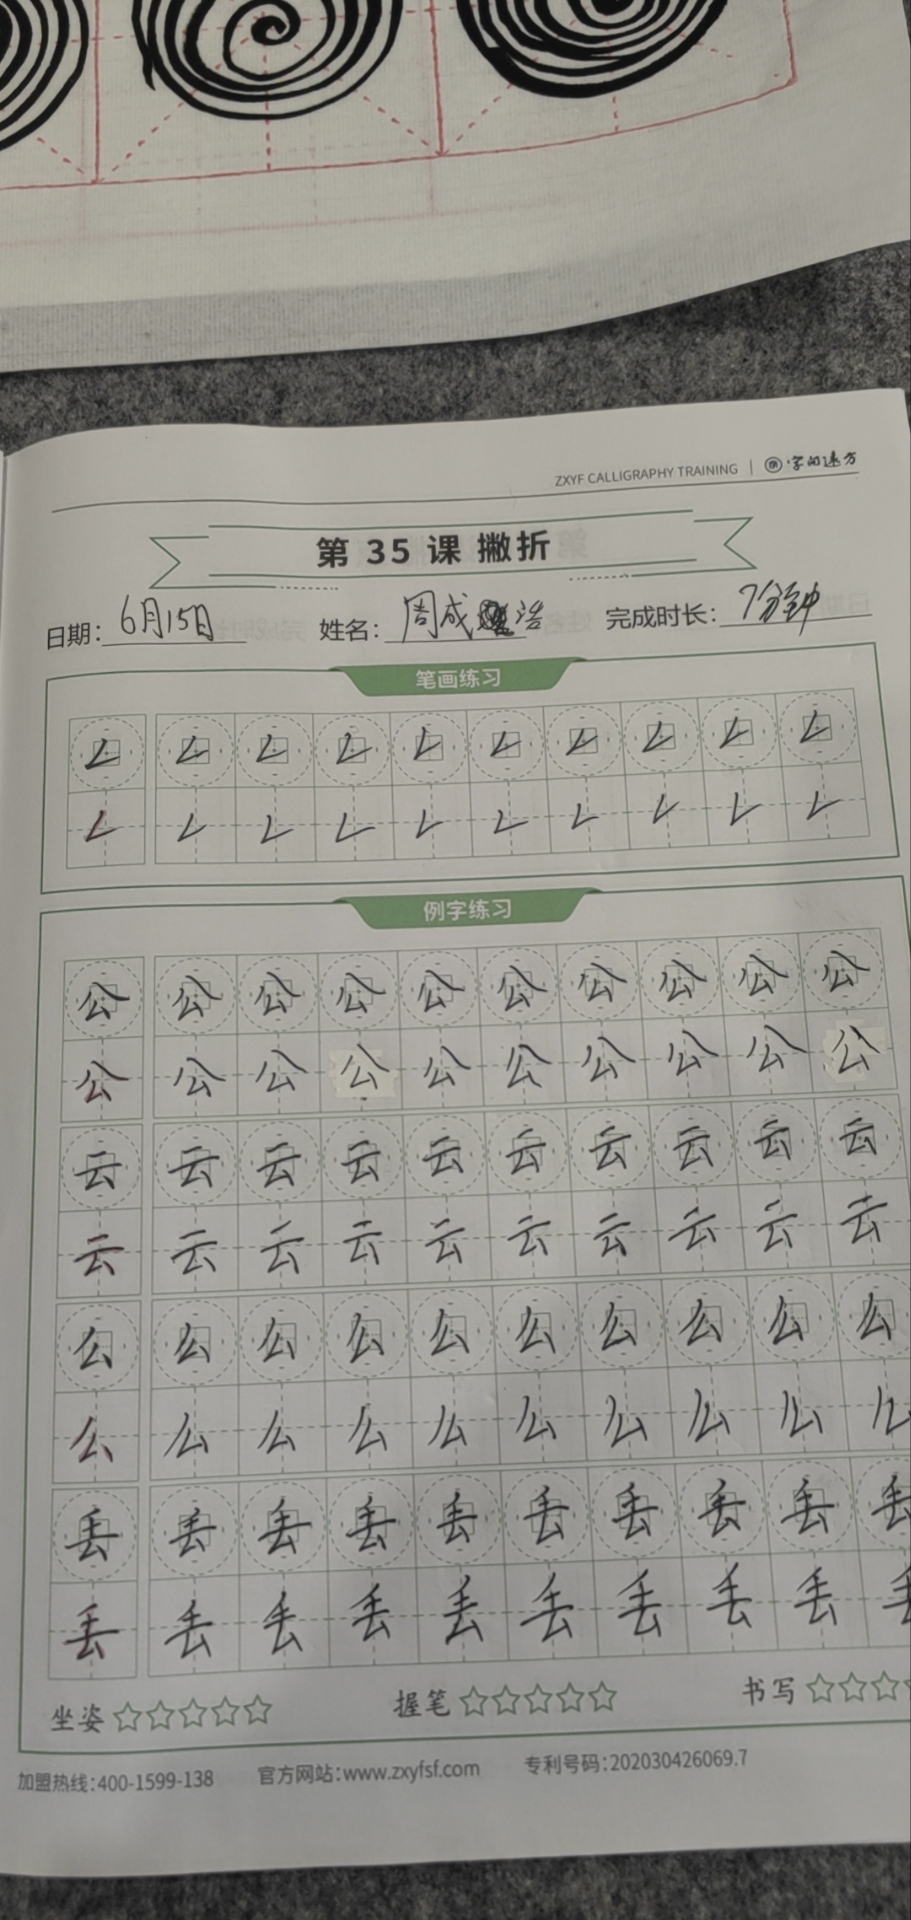 ZXYF CALLIGRAPHY TRAINING | 字的远方
第 35 课 撇折
日期：6月15日 姓名：周成浩 完成时长：7分钟
笔画练习
例字练习
公 公 公 公 公 公 公 公 公 公
公 公 公 公 公 公 公 公 公 公
云 云 云 云 云 云 云 云 云 云
云 云 云 云 云 云 云 云 云 云
么 么 么 么 么 么 么 么 么 么
么 么 么 么 么 么 么 么 么 么
丢 丢 丢 丢 丢 丢 丢 丢 丢 丢
丢 丢 丢 丢 丢 丢 丢 丢 丢 丢
坐姿 握笔 书写
加盟热线：400-1599-138 官方网站：www.zxyfsf.com 专利号码：202030426069.7